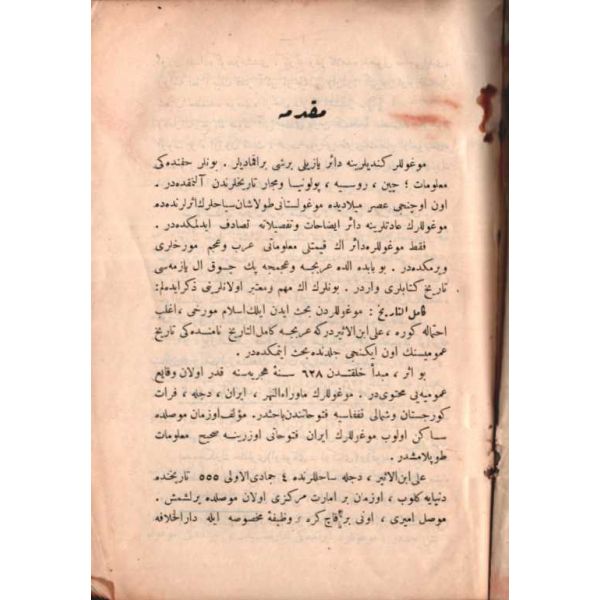 مقدمه
موغوللر كنديلرينه دائر يازيلى برشى براقماديلر . بونلر حقنده كى
معلومات ؛ چين ، روسيه ، پولونيا ومجار تاريخلرندن آلنمقده در .
اون اوچنجى عصر ميلاديده موغولستانى طولاشان سياحلرك اثرلرنده ده
موغوللرك عادتلرينه دائر ايضاحات وتفصيلاته تصادف ايدلمكده در .
فقط موغوللره دائر اك قيمتلى معلوماتى عرب وعجم مورخلرى
ويرمكده در . بو بابده الده عربجه وعجمجه پك چوق ال يازمه سى
تاريخ كتابلرى واردر . بونلرك اك مهم ومعتبر اولانلرينى ذكر ايده لم :
كامل التاريخ : موغوللردن بحث ايدن ايلك اسلام مورخى ، اغلب
احتماله كوره ، على ابن الاثيردركه عربجه كامل التاريخ نامنده كى تاريخ
عموميسنك اون ايكنجى جلدنده بحث ايتمكده در .
بو اثر ، مبدأ خلقتدن ٦٢٨ سنۀ هجريه سنه قدر اولان وقايع
عموميه يى محتوى در . موغوللرك ماوراءالنهر ، ايران ، دجله ، فرات
كورجستان وشمالى قفقاسيه فتوحاتندن باحثدر . مؤلف اوزمان موصلده
ساكن اولوب موغوللرك ايران فتوحاتى اوزرينه صحيح معلومات
طوپلامشدر .
على ابن الاثير ، دجله ساحللرنده ٤ جمادى الاولى ٥٥٥ تاريخنده
دنيايه كلوب ، اوزمان بر امارت مركزى اولان موصلده يرلشمش .
موصل اميرى ، اونى برقاچ كره وظيفۀ مخصوصه ايله دارالخلافه